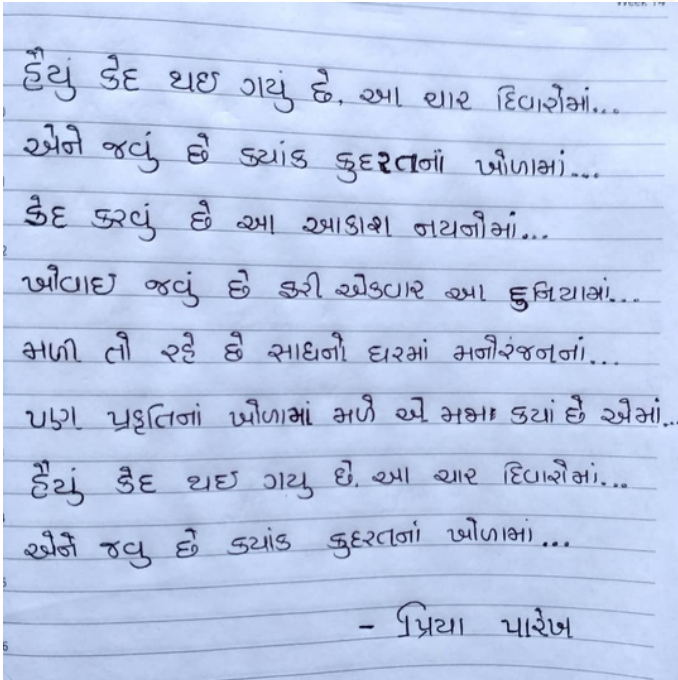 હૈયું કેદ થઇ ગયું છે, આ ચાર દિવારોમાં...
એને જવું છે કયાંક કુદરતનાં ખોળામાં...
કેદ કરવું છે આ આકાશ નયનોમાં...
ખોવાઇ જવું છે ફરી એકવાર આ દુનિયામાં...
મળી તો રહે છે સાધનો ઘરમાં મનોરંજનનાં...
પણ પ્રકૃતિનાં ખોળામાં મળે એ મજા કયાં છે એમાં...
હૈયું કેદ થઇ ગયુ છે. આ ચાર દિવારોમાં...
એને જવુ છે કયાંક કુદરતનાં ખોળામાં...
- પ્રિયા પારેખ